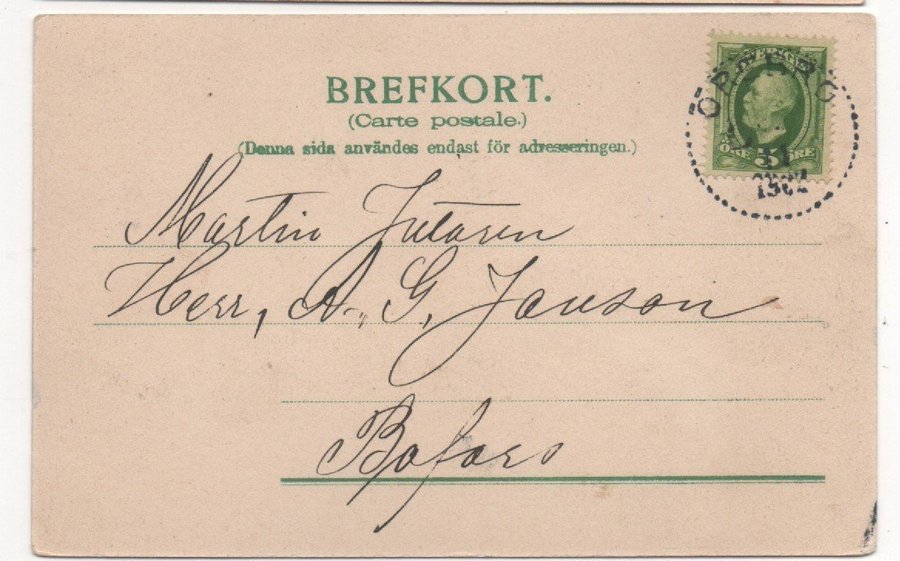 BREFKORT.
(Carte postale.)
(Denna sida användes endast för adresseringen.)
SVERIGE
ÖRE 5 ÖRE
Martin
Herr, A. G. Janson
Bofors